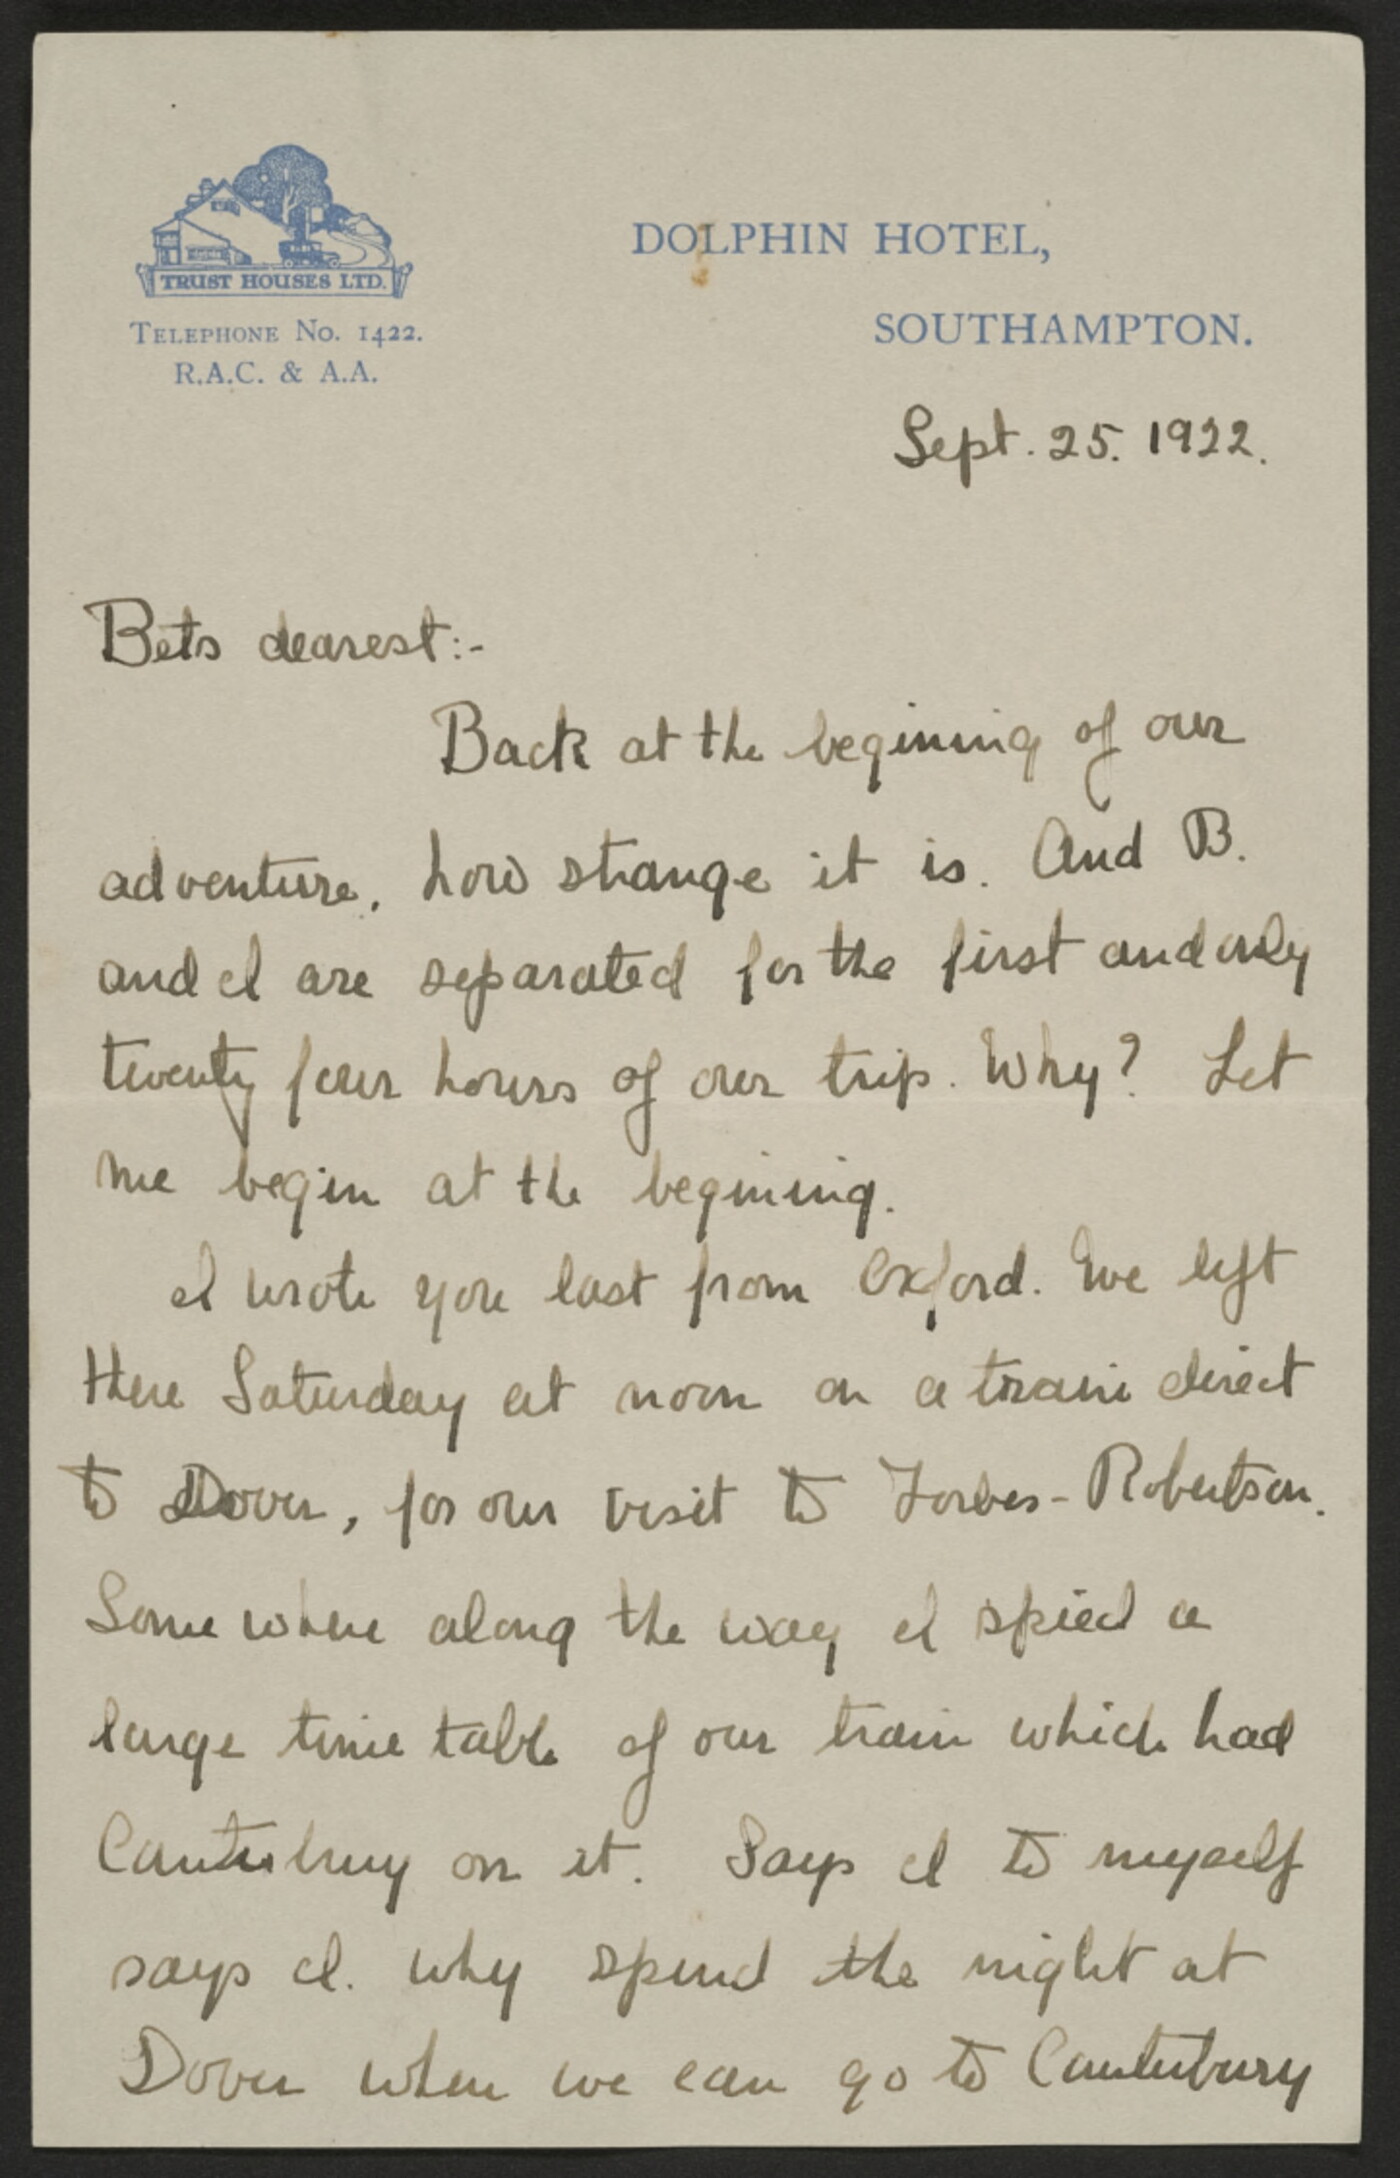 TRUST HOUSES LTD.
TELEPHONE NO. 1422.
R.A.C. & A.A.
DOLPHIN HOTEL,
SOUTHAMPTON.
Sept. 25. 1922.
Bets dearest:-
Back at the beginning of our
adventure, how strange it is. And B.
and I are separated for the first and only
twenty four hours of our trip. Why? Let
me begin at the begining.
I wrote you last from Oxford. We left
there Saturday at noon on a train direct
to Dover, for our visit to Forbes-Robertson.
Somewhere along the way I spied a
large time table of our train which had
Canterbury on it. Says I to myself
says I. why spend the night at
Dover when we can go to Canterbury